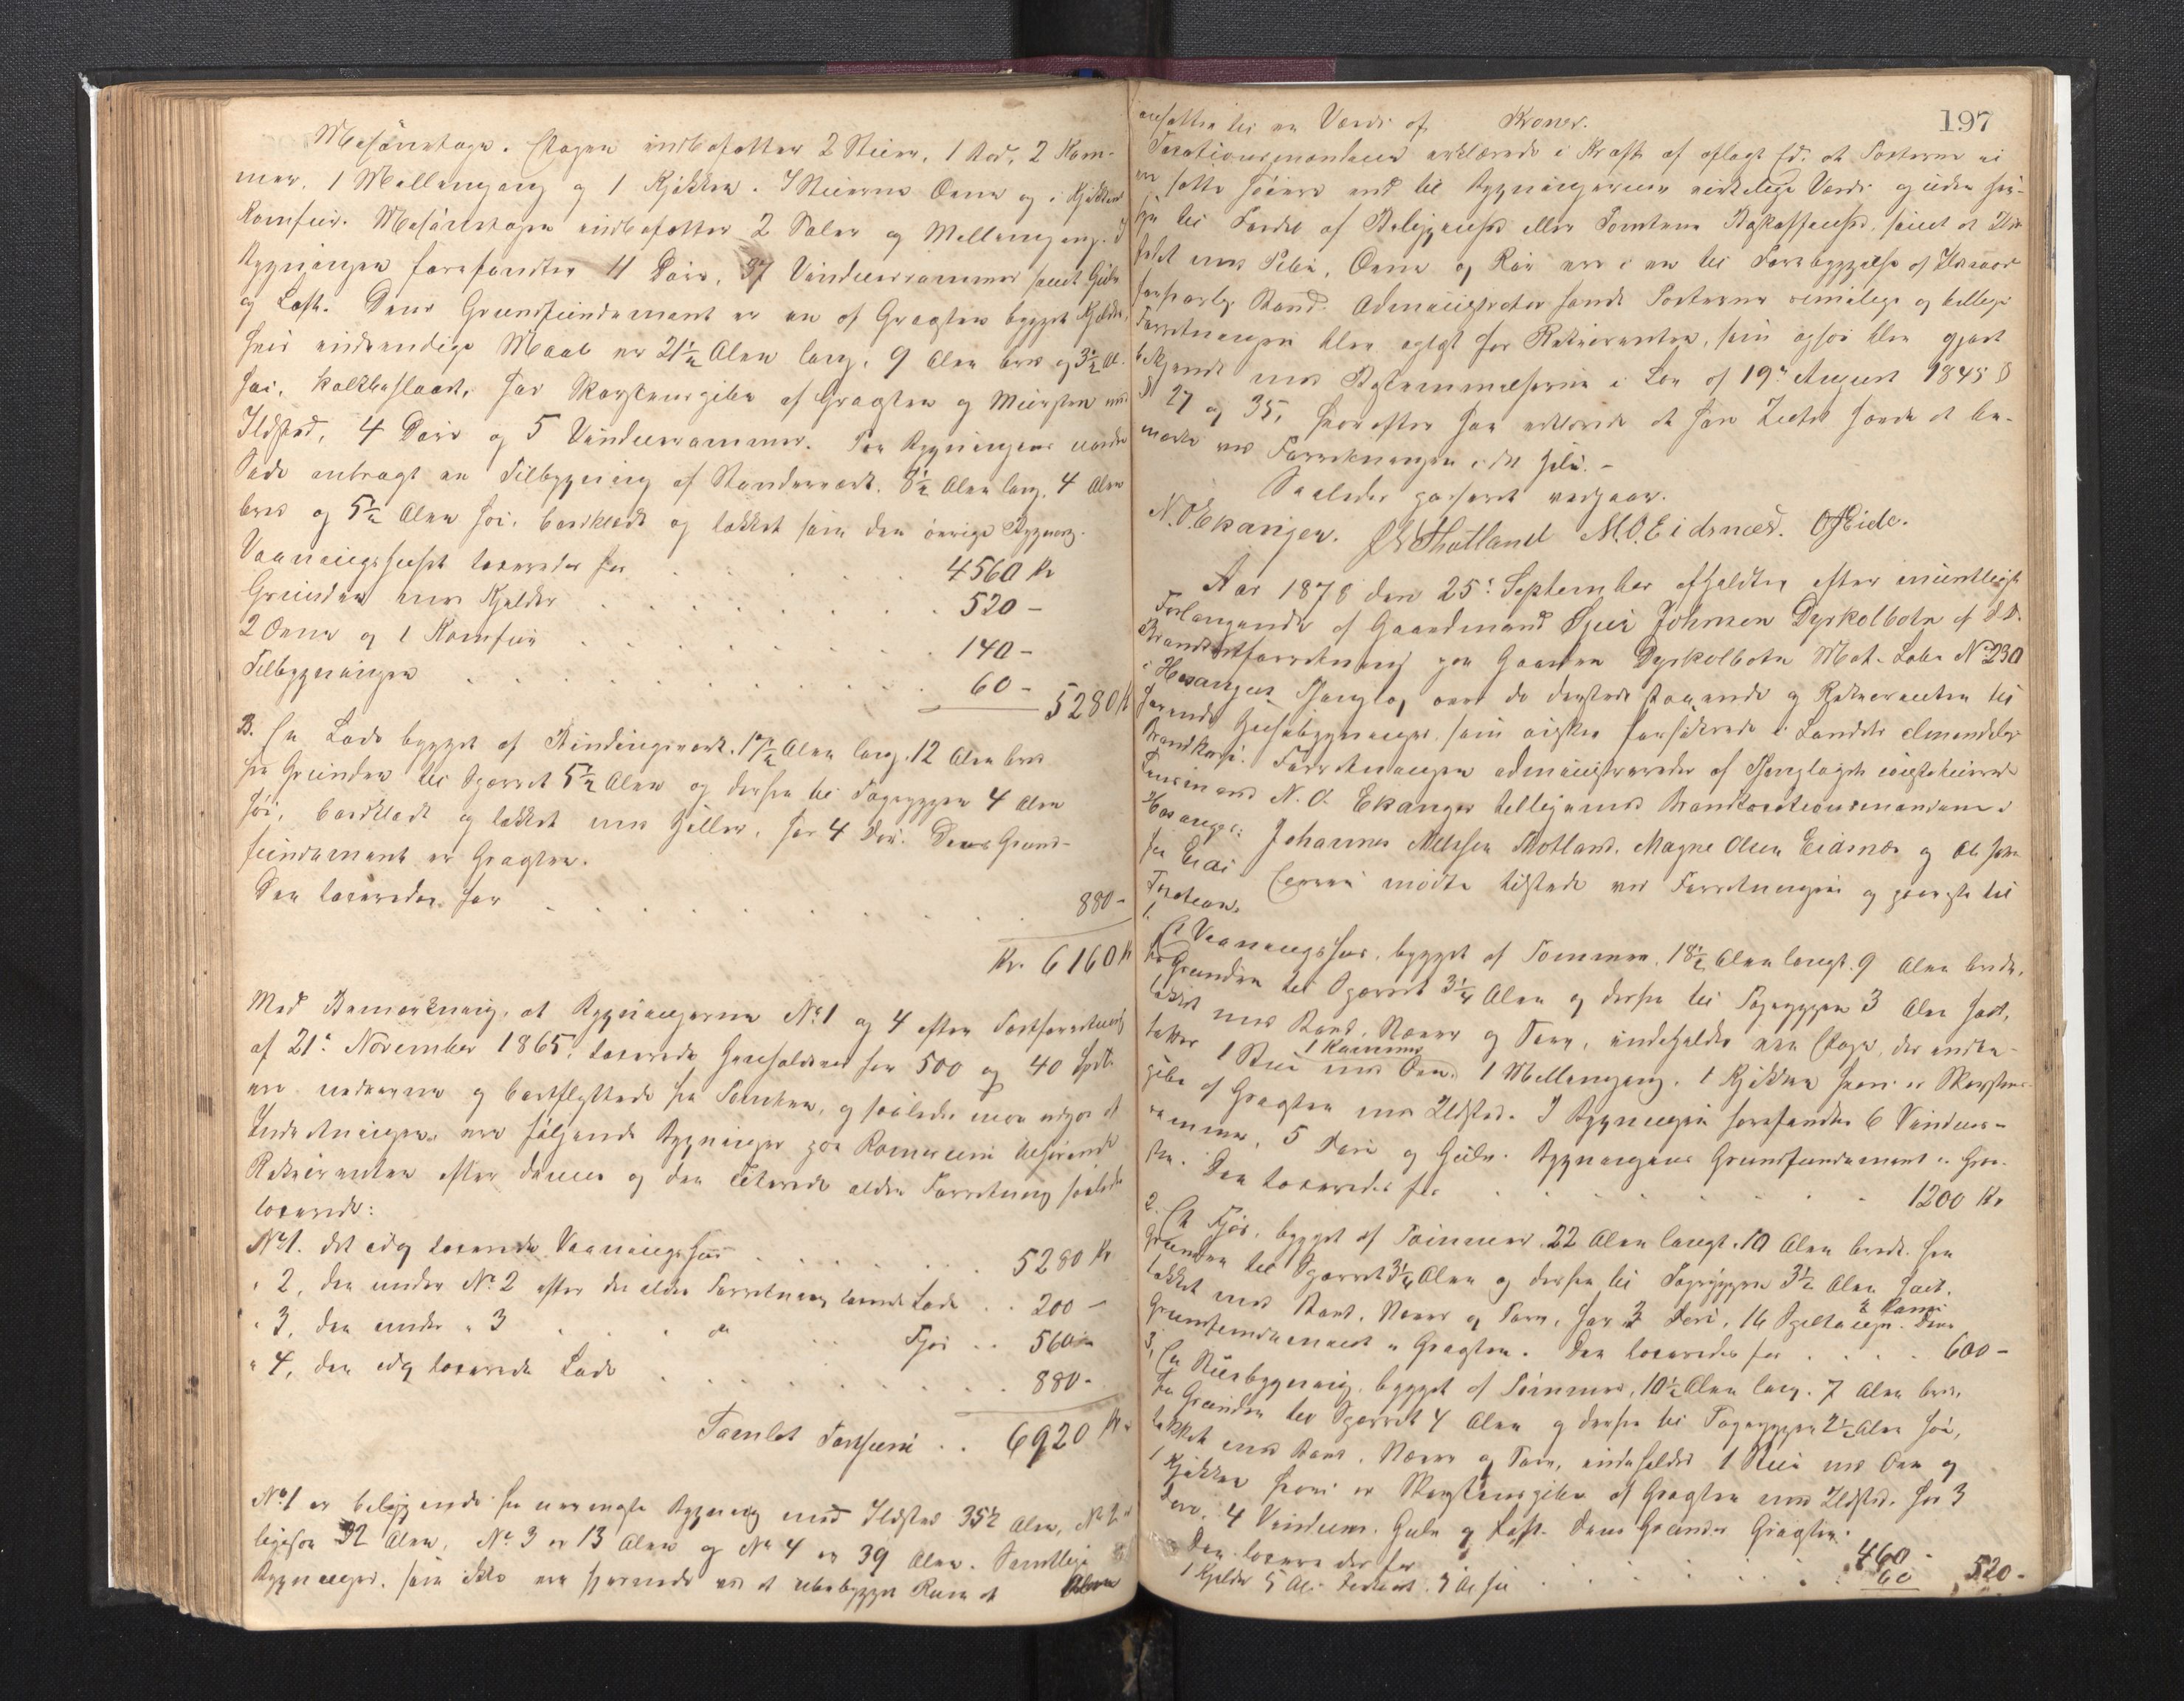 Mesanetage. Etagen indbefatter 2 Stuer, 1 Bod, 2 Kam-
mer, 1 Mellemgang og 1 Kjøkken. I Stuerne Ovne og i Kjøkkenet
Komfuir. Mesanetagen indbefatter 2 Saler og Mellemgang. I
Bygningen forefandtes 11 Døre, 37 Vinduesrammer samt Gulv
og Loft. Dens Grundfundament er en af Graasten bygget Kjelder,
hvis indvendige Maal er 21½ Alen lang, 9 Alen bred og 3½ Al.
høi, kalkbeslaaet, har Skorstenspibe af Graasten og Mursten med
Ildsted, 4 Døre og 5 Vinduesrammer. Paa Bygningens nordre
Side anbragt en Tilbygning af Standværk, 8½ Alen lang, 4 Alen
bred og 5½ Alen høi, bordklædt og tækket som den øvrige Bygning.
Vaaningshuset taxeredes for . . . 4560 Kr
Grunden med Kjelder . . . 520 –
2 Ovne og 1 Komfuir . . . 140 –
Tilbygningen . . . 60 – 5280 Kr
B. En Lade bygget af Bindingsværk, 17½ Alen lang, 12 Alen bred
fra Grunden til Sperret 5½ Alen og derfra til Tagryggen 4 Alen
høi, bordklædt og tækket med Heller, har 4 Døre. Dens Grund-
fundament er Graasten.
Den taxeredes for . . . 880 –
Kr. 6160 Kr
Med Bemærkning, at Bygningerne No 1 og 4 efter Taxtforretning
af 21de November 1865, taxerede henholdsvis for 500 og 40 Spd.
ere nedrevne og bortflyttede fra Tomten, og saaledes maa udgaa af
Indretningen, ere følgende Bygninger paa tilhørende
Rekvirenten efter denne og den citerede ældre Forretning saaledes
taxerede:
No 1. det idag taxerede Vaaningshus . . . 5280 Kr
" 2, den under No 2 efter den ældre Forretning taxerede Lade . . 200 –
" 3, den under " 3 . . . do . . . Fjøs . . 560 –
" 4, den idag taxerede Lade . . . 880 –
Samlet Taxtsum . . 6920 Kr.
No 1 er beliggende fra nærmeste Bygning med Ildsted 35½ Alen, No 2
ligesaa 32 Alen, No 3 er 13 Alen og No 4 er 39 Alen. Samtlige
Bygninger, som ikke ere fjernede ved et ubebygget Rum af Alen
197
ansættes til en Værdi af Kroner.
Taxationsmændene erklærede i Kraft af aflagt Ed, at Taxterne ei
ere satte høiere end til Bygningernes virkelige Værdi og uden Hen-
syn til Fordel af Beliggenhed eller Tomtens Beskaffenhed, samt at Ild-
sted med Pibe, Ovne og Rør ere i en til Forebyggelse af Ildsvaade
forsvarlig Stand. Administrator fandt Taxterne rimelige og billige.
Forretningen blev oplæst for Rekvirenten, som ogsaa blev gjort
bekjendt med Bestemmelserne i Lov af 19de August 1845 §
§ 27 og 35, hvorefter han erklærede at han Intet havde at be-
mærke ved Forretningen i det Hele. –
Saaledes passeret vedgaaes.
N. O. Ekanger. J. N. Shotland M. O. Eidsnæs. O J Eide.
Aar 1878 den 25de September afholdtes efter mundtligt
Forlangende af Gaardmand Sjur Johnsen Dyrkolbotn af d. D.
Brandtaxtforretning paa Gaarden Dyrkolbotn Mat. Løbe No 230
i Hosanger Thinglag over de dersteds staaende og Rekvirenten til-
hørende Husebygninger, som ønskes forsikrede i Landets almindelige
Brandkasse. Forretningen administreredes af Thinglagets constituerede
Lensmand N. O. Ekanger tilligemed Brandtaxationsmændene i
Hosanger: Johannes Nilssen Skotland, Magne Olsen Eidsnæs og Ole Johs
sen Eide. Ceneren mødte tilstede ved Forretningen og paaviste til
Taxation.
1. Et Vaaningshus, bygget af Tømmer, 18½ Alen langt, 9 Alen bredt,
fra Grunden til Sperret 3¼ Alen og derfra til Tagryggen 3 Alen høit,
tækket med Bord, Næver og Torv, indeholder een Etage, der indbe-
fatter 1 Stue med Ovn, 1 Kammer 1 Mellemgang, 1 Kjøkken hvori er Skorstens-
pibe af Graasten med Ildsted. I Bygningen forefandtes 6 Vindues-
rammer, 5 Døre og Gulv. Bygningens Grundfundament er Graa-
sten. Den taxeredes for . . . 1200 Kr
2. Et Fjøs, bygget af Tømmer, 22 Alen langt, 10 Alen bredt, fra
Grunden til Sperret 3¼ Alen og derfra til Tagryggen 3½ Alen høit,
tækket med Bord, Næver og Torv, har 3 Døre, 16 Spiltouge. Dens
Grundfundament er Graasten. Den taxeredes for . . . 600 –
3. En Stuebygning, bygget af Tømmer, 10½ Alen lang, 7 Alen bred,
fra Grunden til Sperret 4 Alen og derfra til Tagryggen 2½ Alen høi,
tækket med Bord, Næver og Torv, indeholder 1 Stue med Ovn og
1 Kjøkken hvori er Skorstenspibe af Graasten med Ildsted, har 3
Døre, 4 Vinduer, Gulv og Loft. Dens Grund er Graasten.
Den taxeredes for . . . 460 –
1 Kjelder 5 Al. . . . 60 520 –